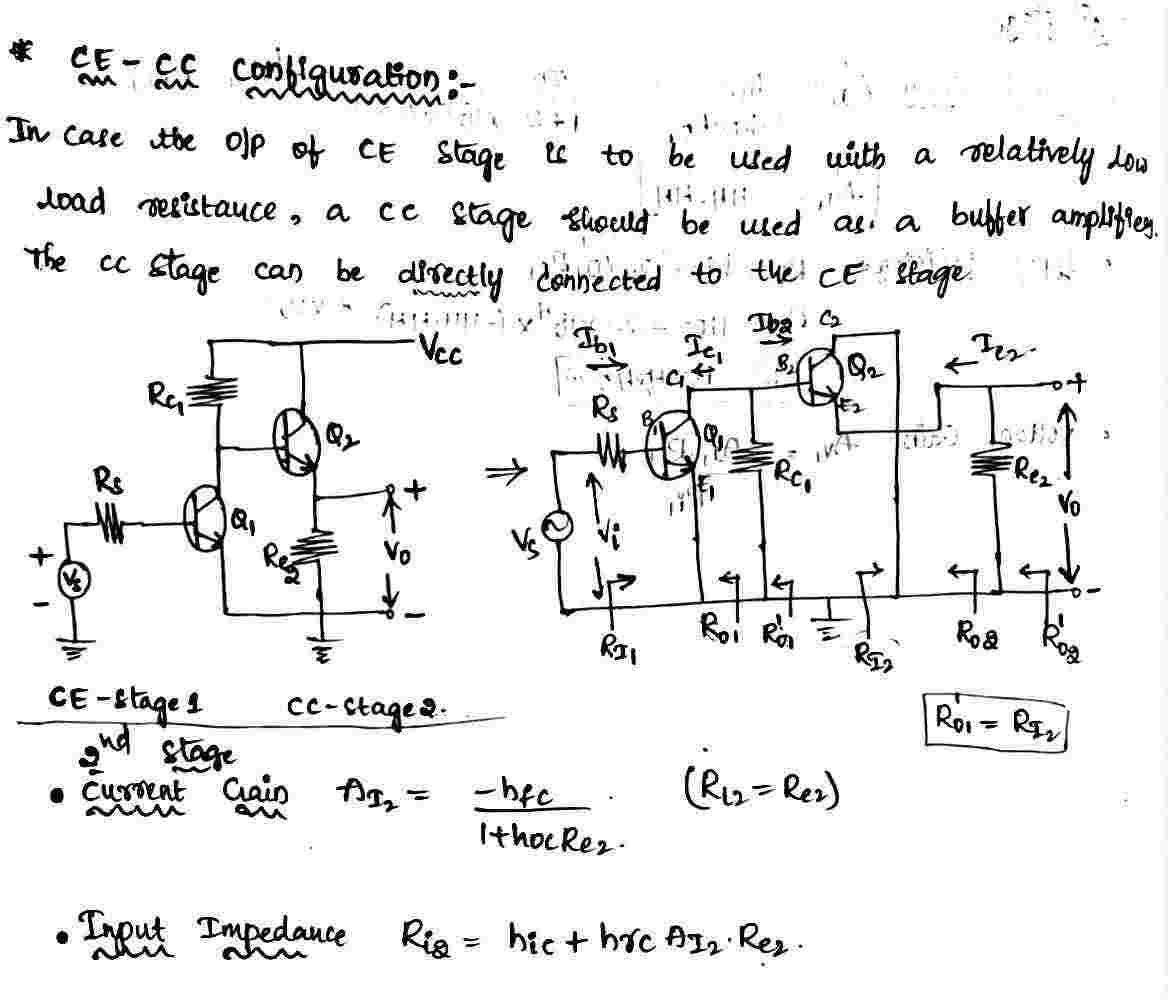 * CE - CC Configuration :-
In case the O/P of CE stage is to be used with a relatively low
load resistance, a CC stage should be used as a buffer amplifier.
The CC stage can be directly connected to the CE stage.
Vcc
Rc1
Q2
Rs
Q1
Re2
Vo
Vs
+
-
+
-
Ib1
Ic1
Ib2
C2
Ie2
B2
Q2
E2
C1
Rs
B1
Q1
E1
Rc1
Re2
Vs
Vi
Vo
+
-
RI1
Ro1
R'o1
RI2
Ro2
R'o2
CE - stage 1
CC - stage 2.
R'o1 = RI2
2nd stage
• Current Gain AI2 = -hfc / 1+hocRe2. (RL2 = Re2)
• Input Impedance Ri2 = hic + hrc AI2 . Re2 .